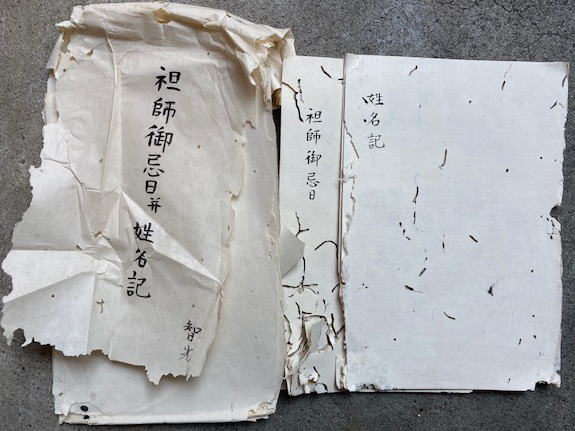 祖師御忌日并姓名記
智
祖師御忌日
姓名記